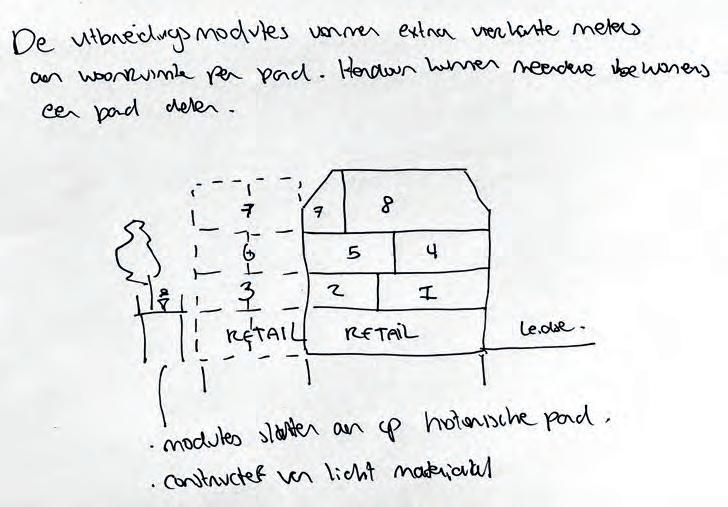 De uitbreidingsmodules vormen extra vierkante meters
aan woonruimte per pand. Hierdoor kunnen meerdere bewoners
een pand delen.
7
7
8
6
5
4
3
2
I
RETAIL
RETAIL
Leidse.
. modules sluiten aan op historische pand.
. constructief van licht materiaal